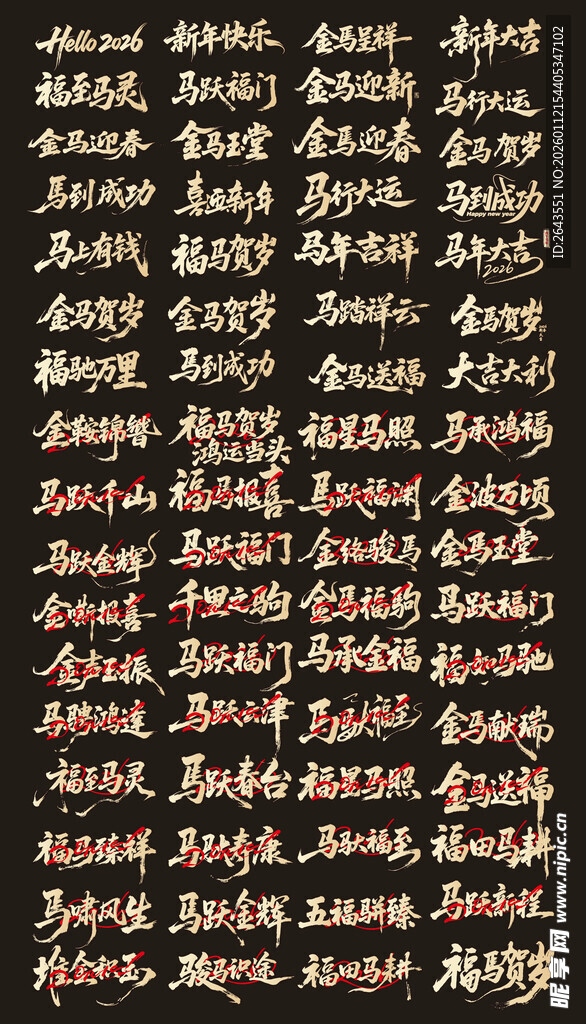 Hello 2026
新年快乐
金馬呈祥
新年大吉
福至马灵
马跃福门
金马迎新
马行大运
金马迎春
金马玉堂
金馬迎春
金马贺岁
馬到成功
喜迎新年
马行大运
马到成功
Happy new year
马上有钱
福马贺岁
马年吉祥
马年大吉
2026
金马贺岁
金马贺岁
马踏祥云
金馬贺岁
福驰万里
馬到成功
金马送福
大吉大利
金鞍锦辔
福马贺岁
鸿运当头
福星马照
马承鸿福
马跃千山
福马报喜
马跃福渊
金池万顷
马跃金辉
马跃福门
金络骏马
金马玉堂
金嘶报喜
千里之驹
金馬福驹
马跃福门
金声玉振
马跃福门
马承金福
福如马驰
马骋鸿达
马跃天津
马驮福至
金馬献瑞
福至马灵
馬跃春台
福星马照
金马送福
福马臻祥
马驮寿康
马驮福至
福田马耕
马啸风生
马跃金辉
五福骈臻
马跃新程
堆金积玉
骏马识途
福田马耕
福馬贺岁
昵享网 www.nipic.cn
ID:2643551 NO:20260112154405347102